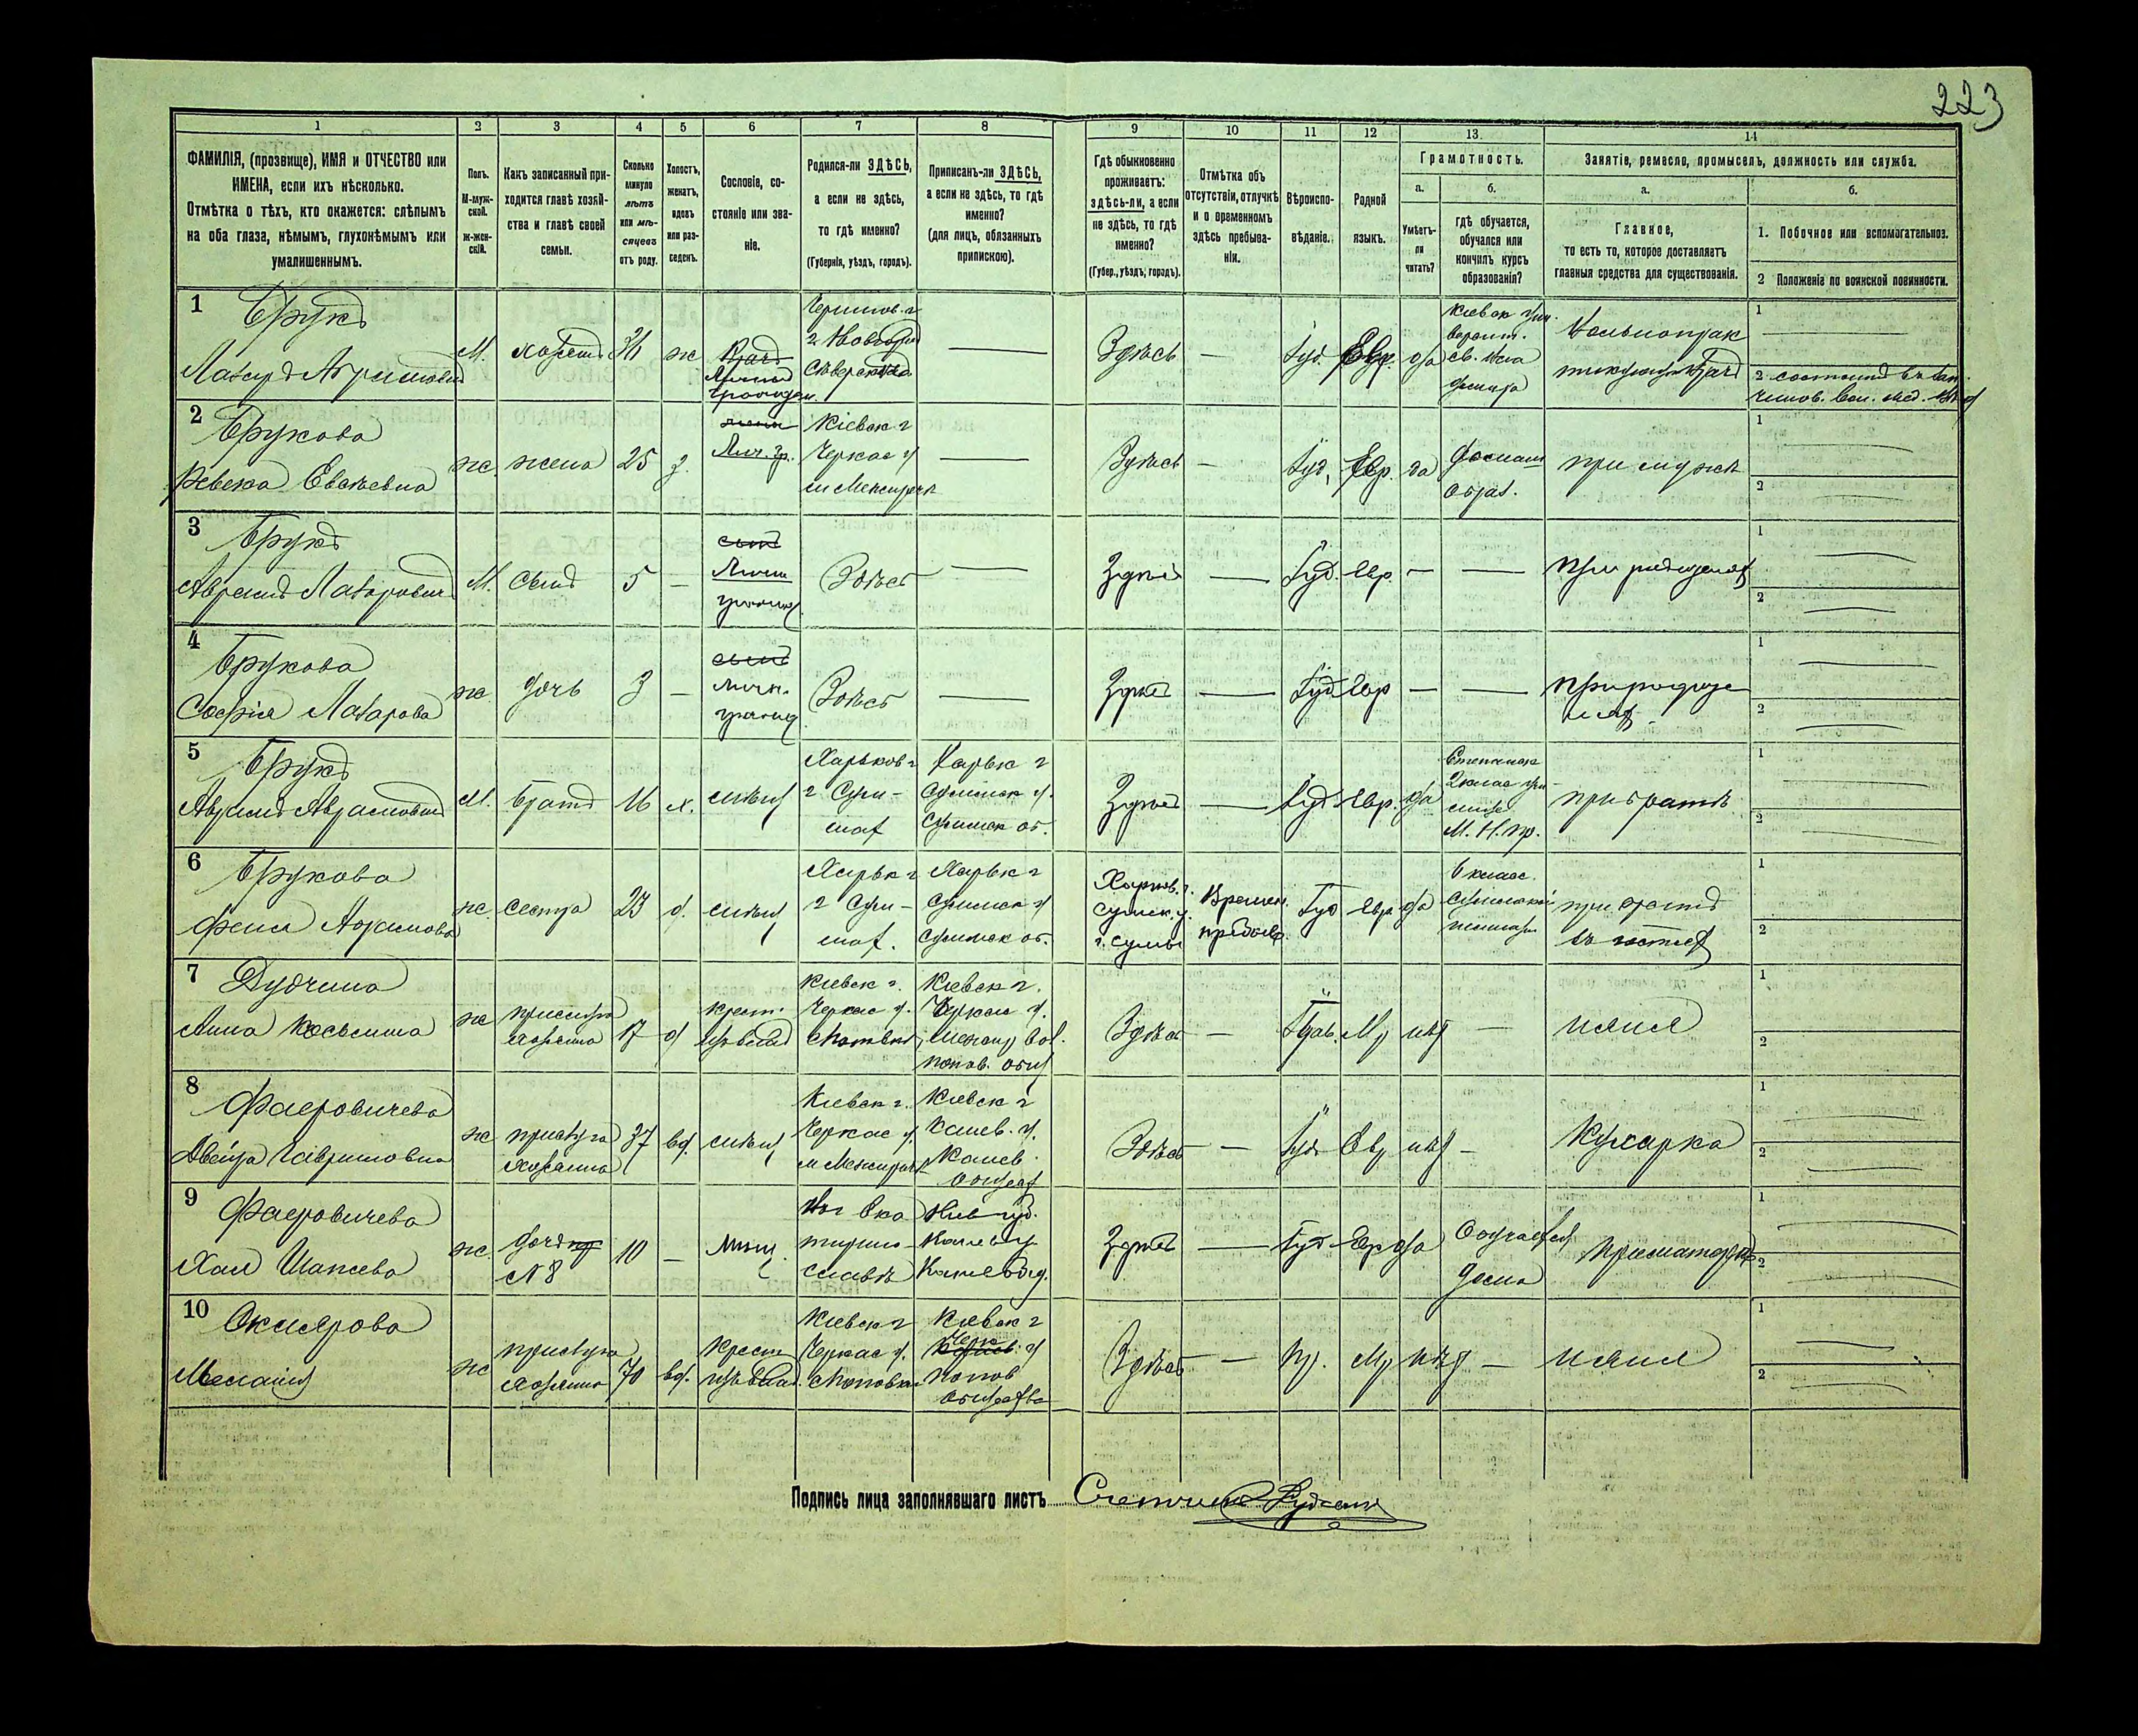 223
1 2 3 4 5 6 7 8 9 10 11 12 13. 14
ФАМИЛІЯ, (прозвище), ИМЯ и ОТЧЕСТВО или
ИМЕНА, если ихъ нѣсколько.
Отмѣтка о тѣхъ, кто окажется: слѣпымъ
на оба глаза, нѣмымъ, глухонѣмымъ или
умалишеннымъ.
Полъ.
М-муж-
ской.
Ж-жен-
скій.
Какъ записанный при-
ходится главѣ хозяй-
ства и главѣ своей
семьи.
Сколько
минуло
лѣтъ
или мѣ-
сяцевъ
отъ роду.
Холостъ,
женатъ,
вдовъ
или раз-
веденъ.
Сословіе, со-
стояніе или зва-
ніе.
Родился-ли ЗДѢСЬ,
а если не здѣсь,
то гдѣ именно?
(Губернія, уѣздъ, городъ).
Приписанъ-ли ЗДѢСЬ,
а если не здѣсь, то гдѣ
именно?
(для лицъ, обязанныхъ
припискою).
Гдѣ обыкновенно
проживаетъ:
здѣсь-ли, а если
не здѣсь, то гдѣ
именно?
(Губер., уѣздъ, городъ).
Отмѣтка объ
отсутствіи, отлучкѣ
и о временномъ
здѣсь пребыва-
ніи.
Вѣроиспо-
вѣданіе.
Родной
языкъ.
Грамотность.
а.
Умѣетъ-
ли
читать?
б.
гдѣ обучается,
обучался или
кончилъ курсъ
образованія?
Занятіе, ремесло, промыселъ, должность или служба.
а.
Главное,
то есть то, которое доставляетъ
главныя средства для существованія.
б.
1. Побочное или вспомогательное.
2 Положеніе по воинской повинности.
1
Брукъ
Лазарь Абрамовичъ
М. хозяинъ ж
Врачъ
Личный
граждан.
Чернигов. г
г. Новгород
Сѣверска
Здѣсь — Іуд. Евр. да
Кіевск Уни-
версит.
св. Вла
диміра
Вольнопрак
тикующій врачъ
1
2
2
Брукова
Ревека Евсѣевна
ж жена 25 з.
жена
Лич. гр.
Кіевск г
Черкас у
м Межирѣчъ
Здѣсь — Іуд. Евр. да
Домашн
образ.
при мужѣ
1
2
3
Брукъ
Абрамъ Лазаровичъ
М. Сынъ 5 —
сынъ
Личн
гражд
Здѣсь
Здѣсь — Іуд. Евр. — —
при родителяхъ
1
2
4
Брукова
Софія Лазарова
ж дочь 3 —
сынъ
личн.
гражд
Здѣсь
Здѣсь — Іуд Евр — —
при родите
ляхъ
1
2
5
Брукъ
М. братъ 16 х. мѣщ
Харьков г
г Сум-
махъ
Харьк г
Сумск у.
Сумск об.
Здѣсь — Іуд. Евр. да
2 клас учи
лище
М. Н. пр.
при братѣ
1
2
6
Брукова
Феня Абрамова
ж. сестра 23 д. мѣщ
Харьк г
г Сум-
махъ.
Харьк г
Сумск у
Сумск об.
Харьков. г.
Сумск. у.
г. Сумы
Времен.
пребыв.
Іуд Евр да
6 класс.
Сумской
гимназіи
при братѣ
въ гостяхъ
1
2
7
Дудчина
Анна Косьмина
ж
прислуга
хозяина
17 д
крест.
изъ влад
Кіевск г.
Черкас у.
Кіевск г.
Черкас у.
Здѣсь — Прав. Мр нѣтъ —
няня
1
2
8
Фаеровичева
Двейра Гавриловна
ж
прислуга
хозяина
37 вд. мѣщ
Кіевск г.
Черкас у.
м Межирѣчъ
Кіевск г
Канев. у.
Канев
общест
Здѣсь — Іуд Евр нѣтъ —
Кухарка
1
2
9
Фаеровичева
Хая Шапсева
ж.
дочь
№ 8
10 — мѣщ.
въ Ека
терино-
славѣ
Кіев губ.
Канев у
Здѣсь — Іуд Евр да
Обучается
дома
при матери
1
2
10
Мелания
ж
прислуга
хозяина
70 вд.
крест
изъ влад.
Кіевск г
Черкас у.
с Поповка
Кіевск г
Черк у
Попов
общества
Здѣсь — Пр. Мр нѣтъ —
няня
1
2
Подпись лица заполнявшаго листъ